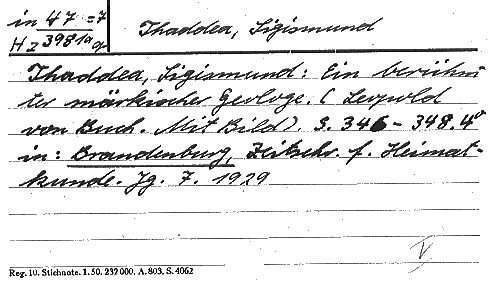 in 47 = 7
Hz 3981a gr
Thaddea, Sigismund
Thaddea, Sigismund: Ein berühm-
ter märkischer Geologe. (Leopold
von Buch. Mit Bild). S. 346-348. 4°
in: Brandenburg, Zeitschr. f. Heimat-
kunde. Jg. 7. 1929
V
Reg. 10. Stichnote. 1. 50. 232 000. A. 803. S. 4062